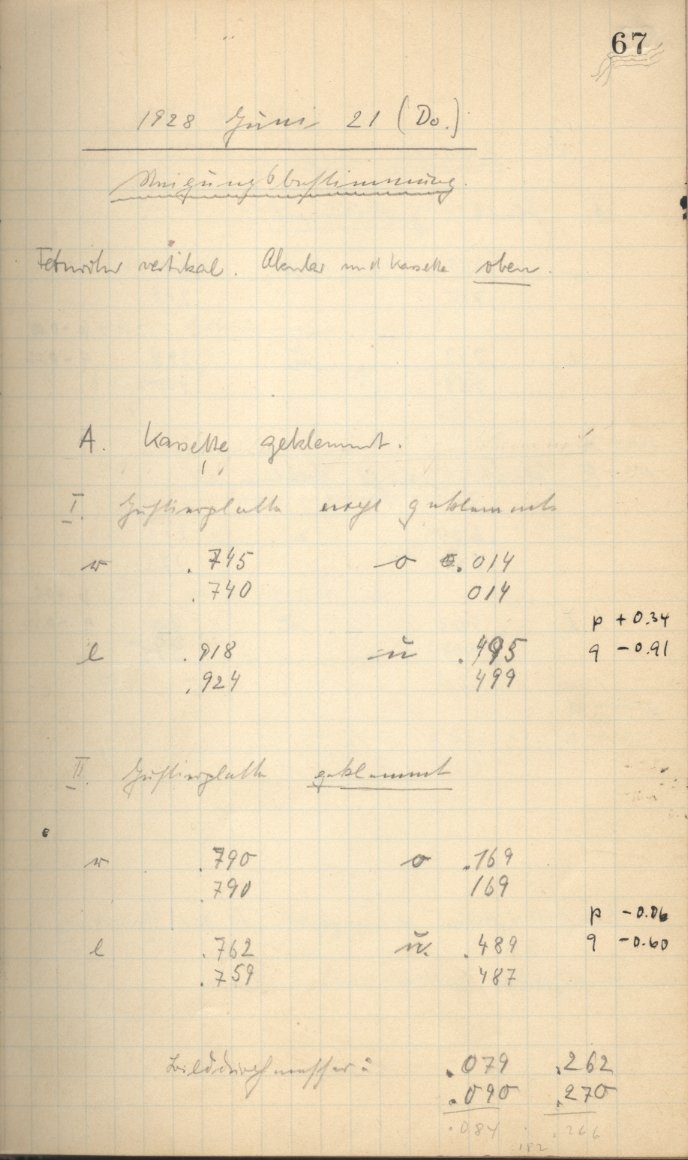 67
1928 Juni 21 (Do.)
Neigungsbestimmung.
Fernrohr vertikal. Okular und Kassette oben.
A. Kassette geklemmt.
I. Justierplatte nicht geklemmt
r .745 o 0.014
.740 014
p +0.34
l .918 u .495 q -0.91
.924 499
II. Justierplatte geklemmt
r .790 o .169
.790 169
p -0.06
l .762 u. .489 q -0.60
.759 487
Bilddurchmesser: .079 .262
.090 .270
.084 .266
182